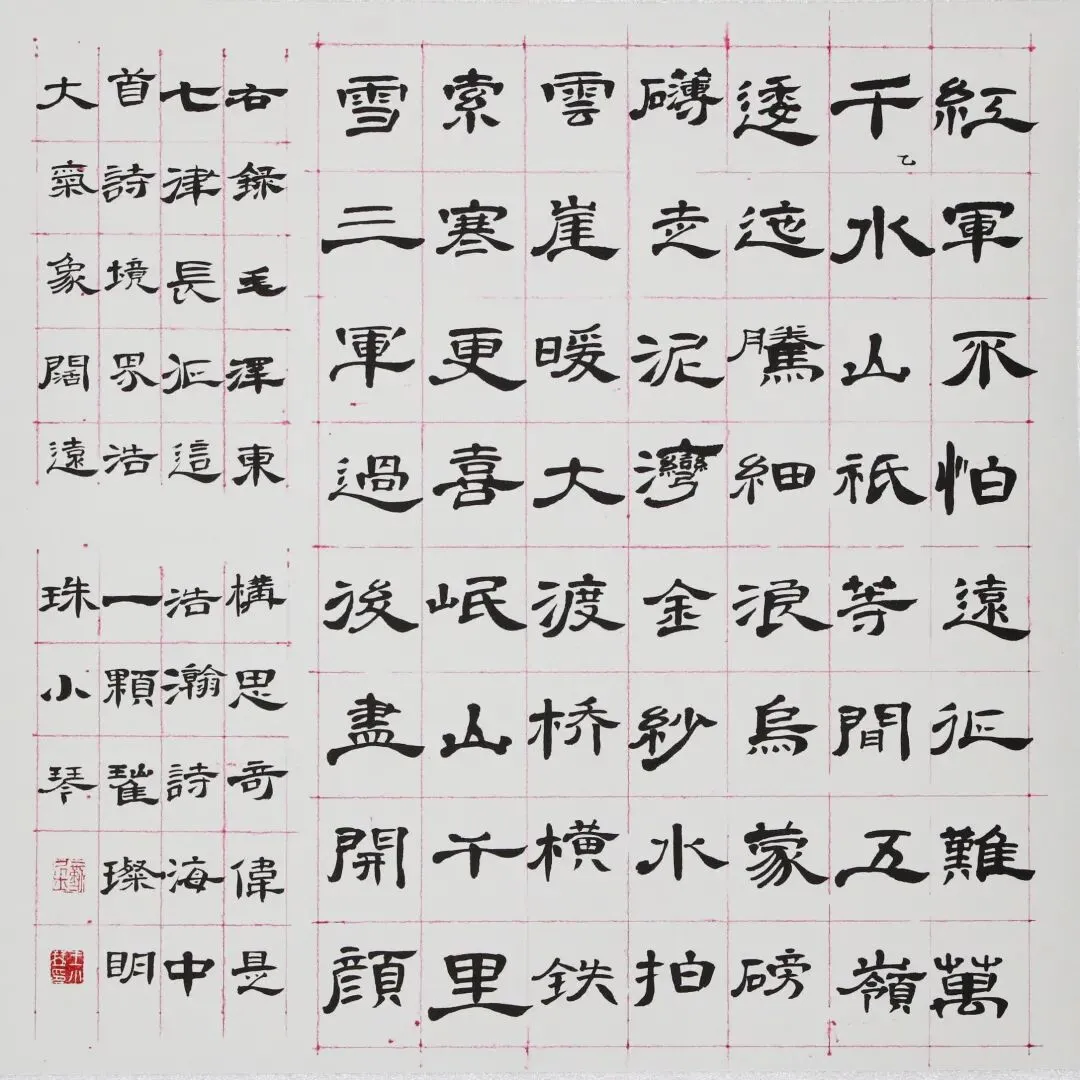 紅軍不怕遠征難萬
千乙水山祇等間五嶺
逶迤騰細浪烏蒙磅
礴走泥灣金紗水拍
雲崖暖大渡桥橫鉄
索寒更喜岷山千里
雪三軍過後盡開顏
右錄毛澤東
七律長征這
首詩境界浩
大氣象闊遠
構思奇偉是
浩瀚詩海中
一顆璀璨明
珠小琴